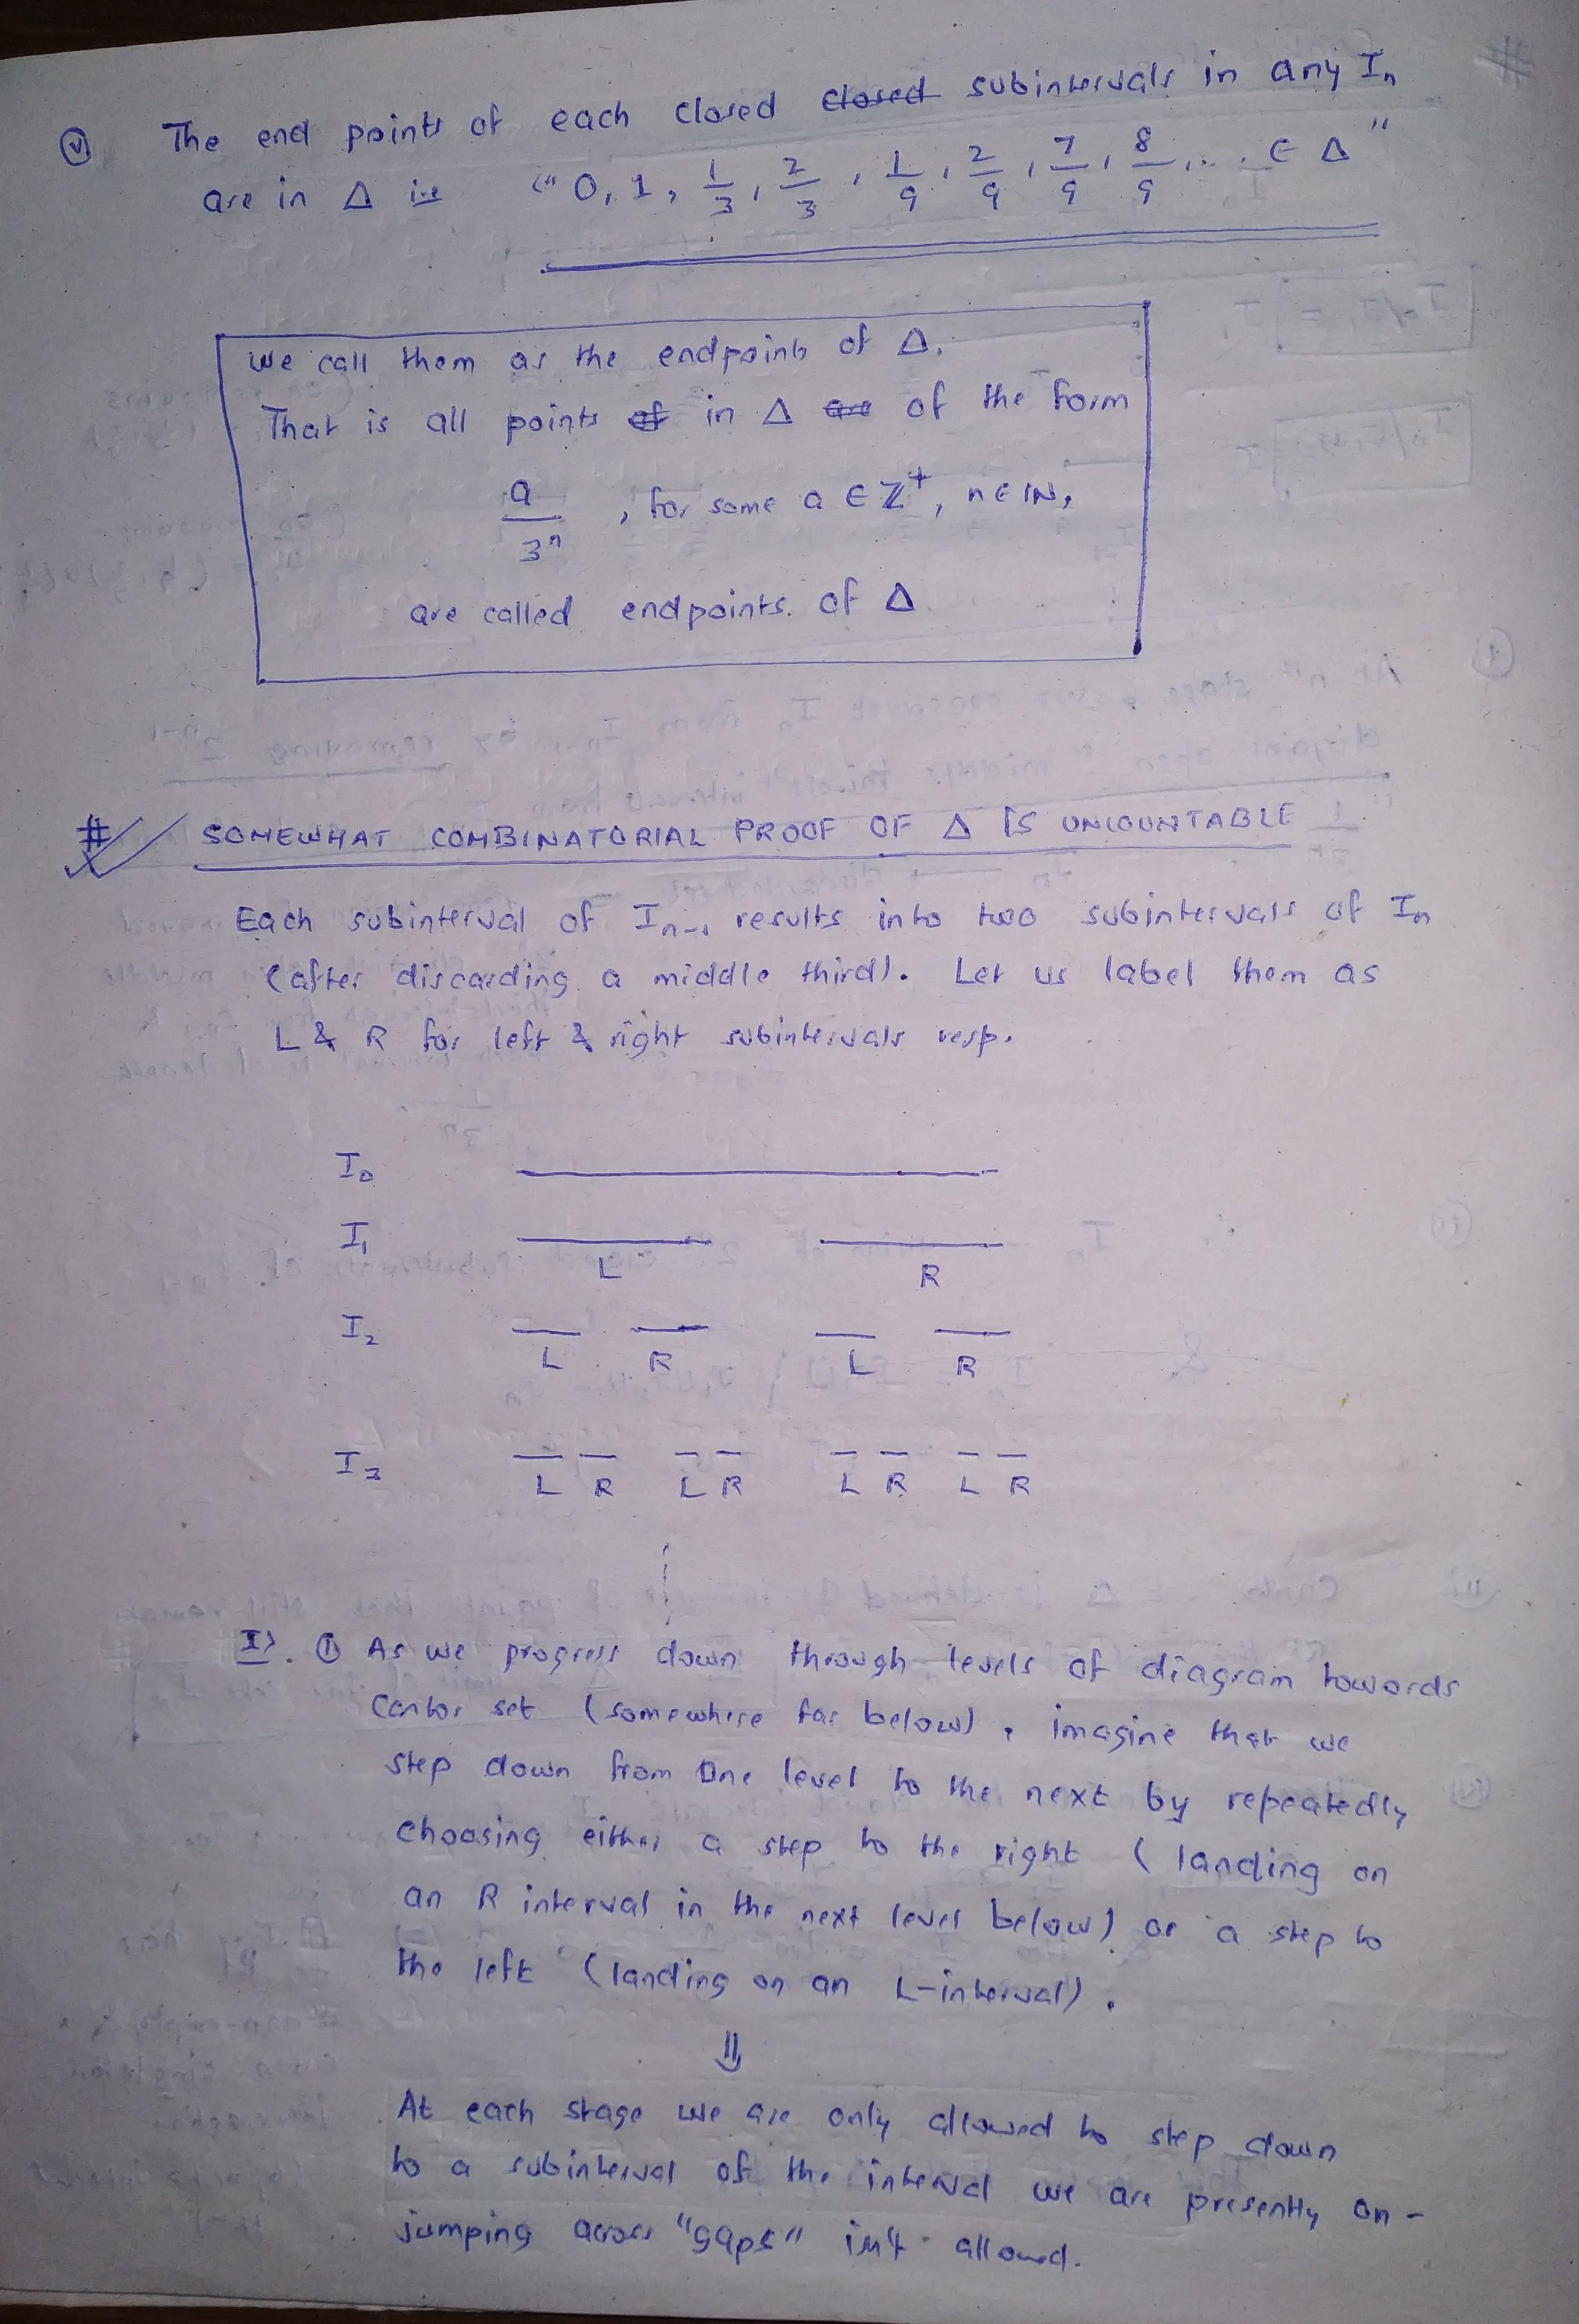 (v) The end points of each closed closed subintervals in any Iₙ
are in Δ i.e "0, 1, 1/3, 2/3, 1/9, 2/9, 7/9, 8/9, ... ∈ Δ"
We call them as the endpoints of Δ.
That is all points of in Δ are of the form
a/3ⁿ, for some a ∈ ℤ⁺, n ∈ ℕ,
are called endpoints. of Δ
# SOMEWHAT COMBINATORIAL PROOF OF Δ IS UNCOUNTABLE
Each subinterval of Iₙ₋₁ results into two subintervals of Iₙ
(after discarding a middle third). Let us label them as
L & R for left & right subintervals resp.
I₀
I₁
L R
I₂
L R L R
I₃
L R L R L R L R
I). ① As we progress down through levels of diagram towards
Cantor set (somewhere far below), imagine that we
step down from one level to the next by repeatedly
choosing either a step to the right (landing on
an R interval in the next level below) or a step to
the left (landing on an L-interval).
⇓
At each stage we are only allowed to step down
to a subinterval of the interval we are presently on -
jumping across "gaps" isn't allowed.